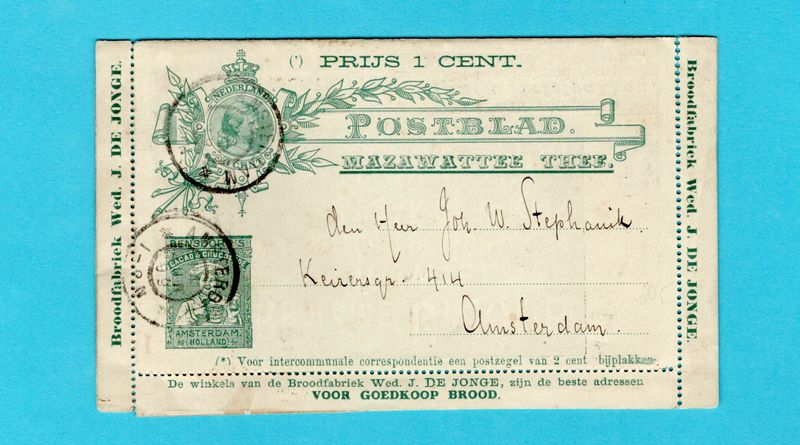 (*) PRIJS 1 CENT.
NEDERLAND
CENT
POSTBLAD.
MAZAWATTEE THEE.
Broodfabriek Wed. J. DE JONGE.
Broodfabriek Wed. J. DE JONGE.
den Heer Joh. W. Stephanik
Keizersgr. 414
Amsterdam.
BENSDORP'S
CACAO & CHOCO
AMSTERDAM.
HOLLAND
(*) Voor intercommunale correspondentie een postzegel van 2 cent bijplakken.
De winkels van de Broodfabriek Wed. J. DE JONGE, zijn de beste adressen
VOOR GOEDKOOP BROOD.